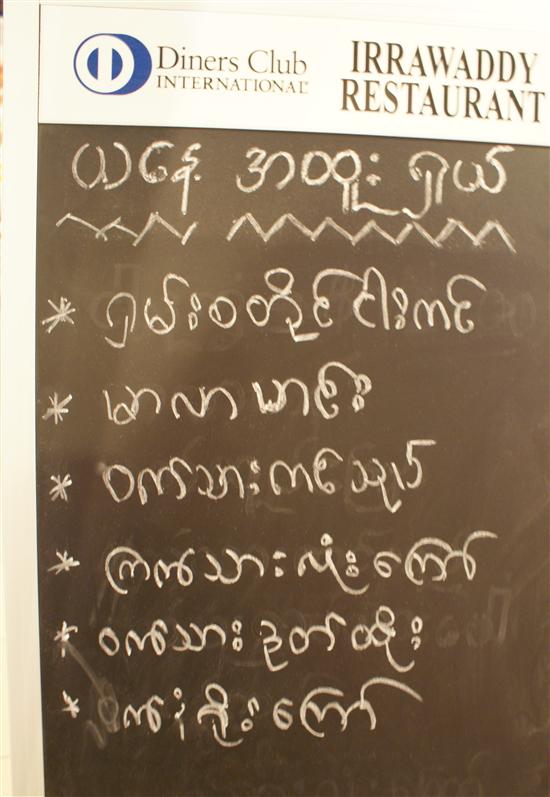 Diners Club
INTERNATIONAL
IRRAWADDY
RESTAURANT
ယနေ့ အထူး ရှယ်
* ရှမ်းစတိုင် ငါးကင်
* မာလာ ဟင်း
* ဝက်သားကင် သုပ်
* ကြက်သားလုံးကြော်
* ဝက်သား ဒုတ်ထိုး
* ကြော်